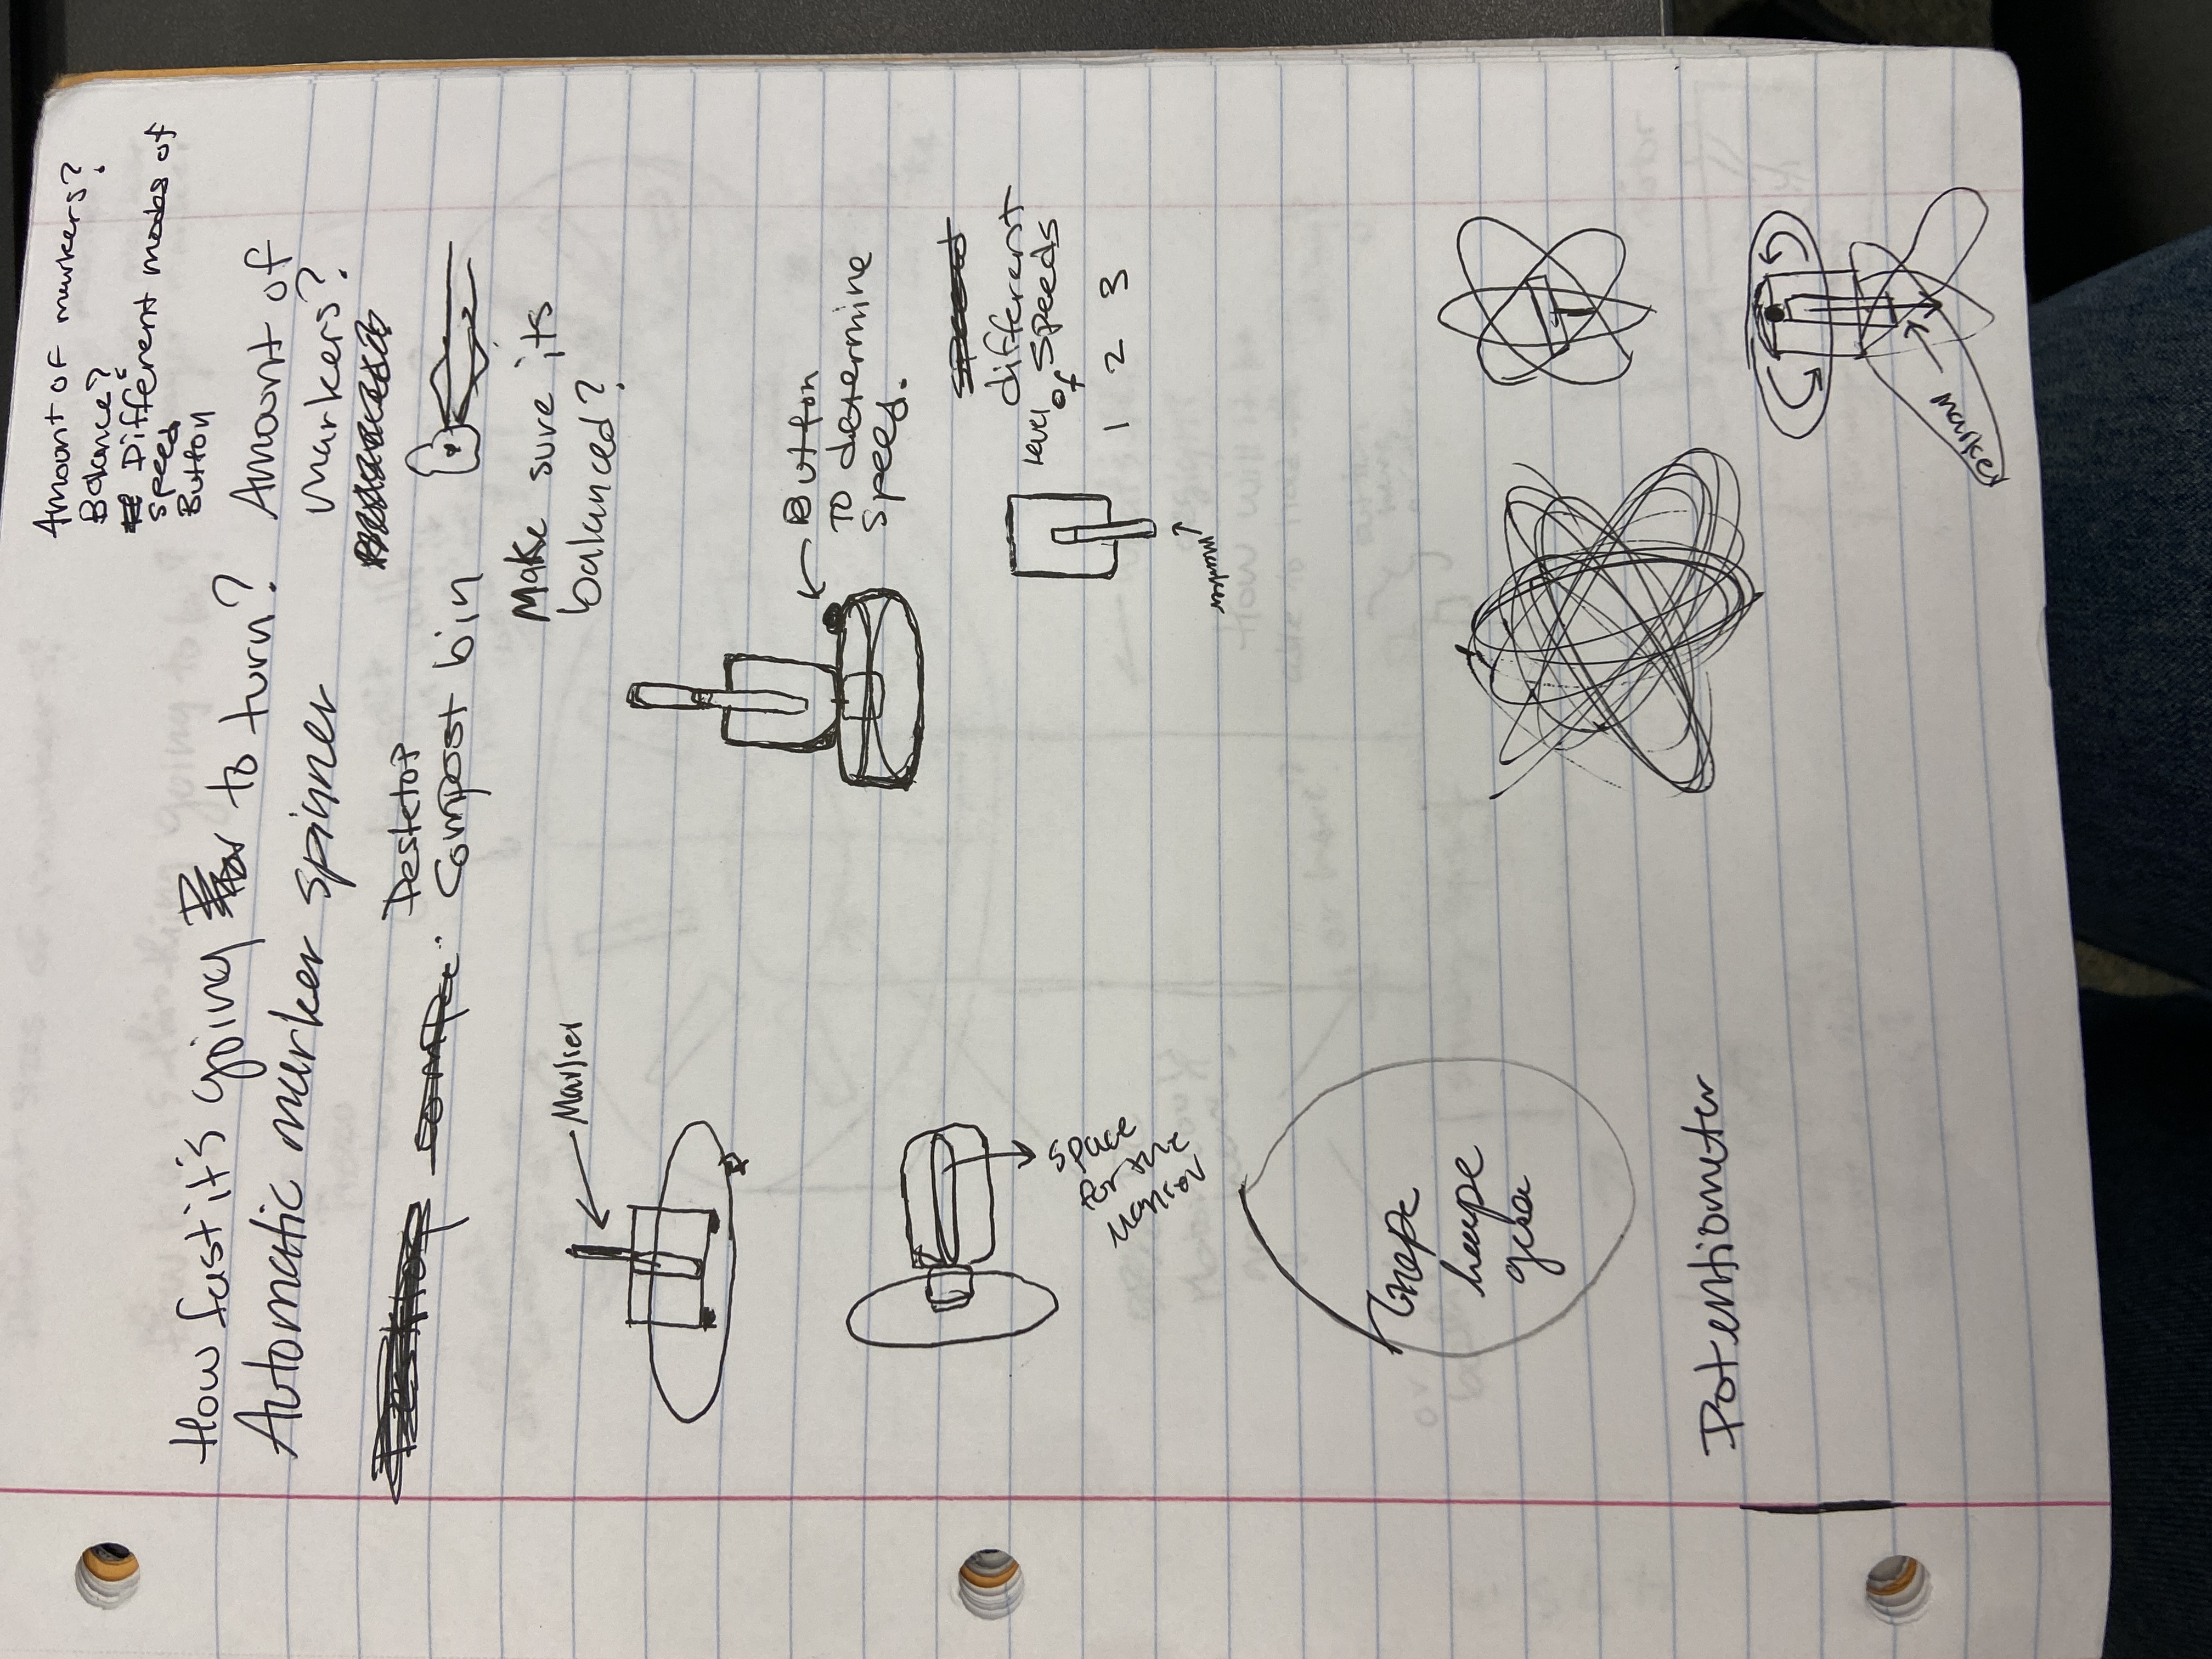 Amount of markers?
Balance?
Different modes of
speed
Button
How fast it's going to turn?
Automatic marker spinner
Amount of
markers?
Desktop compo
Desktop
Compost bin
Make sure its
balanced?
Marker
Button
TO determine
Speed.
speed
different
Level of speeds
1 2 3
Space
for the
Marker
Marker
Potentiometer
Marker